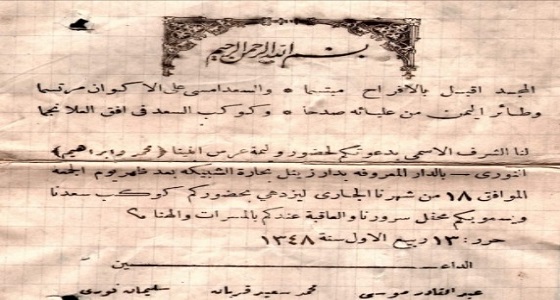 بسم الله الرحمن الرحيم
المجد اقبل بالافراح مبتسما • والسعد امسى على الاكوان مرتسما
وطائر اليمن من عليائه صدحا • وكوكب السعد فى افق العلا نجما
لنا الشرف الاسمى بدعوتكم لحضور وليمة عرس الفيتا (محمد وابراهيم)
النورى — بالدار المعروفة بدار زينل بحارة الشبيكه بعد ظهر يوم الجمعة
الموافق ١٨ من شهرنا الجارى ليزدهي بحضوركم كوكب سعدنا
ويسمو بكم محفل سرورنا والعاقبة عندكم بالمسرات والهنا
حرر : ١٣ ربيع الاول سنة ١٣٤٨
الداعـــــــين
عبد القادر موسى محمد سعيد قربان سليمان نورى